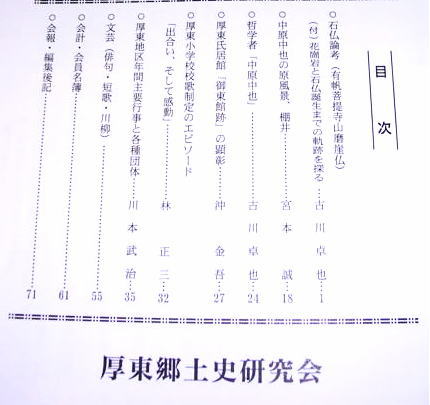 目次
○石仏論考（有帆菩提寺山磨崖仏）
（付）花崗岩と石仏誕生までの軌跡を探る…古川卓也…1
○中原中也の原風景、棚井…………宮本誠…18
○哲学者「中原中也」…………古川卓也…24
○厚東氏居館「御東館跡」の顕彰…………沖金吾…27
○厚東小学校校歌制定のエピソード
「出合い、そして感動」…………林正三…32
○厚東地区年間主要行事と各種団体…………川本武治…35
○文芸（俳句・短歌・川柳）…………55
○会計・会員名簿…………61
○会報・編集後記…………71
厚東郷土史研究会